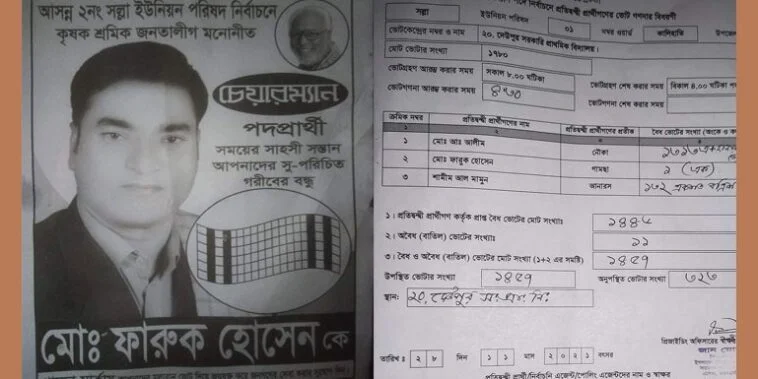 আসন্ন ২নং সল্লা ইউনিয়ন পরিষদ নির্বাচনে
কৃষক শ্রমিক জনতালীগ মনোনীত
চেয়ারম্যান
পদপ্রার্থী
সময়ের সাহসী সন্তান
আপনাদের সু-পরিচিত
গরীবের বন্ধু
মোঃ ফারুক হোসেন কে
নির্বাচনে প্রতিদ্বন্দ্বী প্রার্থীগণের ভোট গণনার বিবরণী
সল্লা ইউনিয়ন পরিষদ ০১ নম্বর ওয়ার্ড কালিহাতি
ভোটকেন্দ্রের নম্বর ও নাম ২০, দেউপুর সরকারি প্রাথমিক বিদ্যালয়।
মোট ভোটার সংখ্যা ১৭৮০
ভোটগ্রহণ আরম্ভ করার সময় সকাল ৮.০০ ঘটিকা ভোটগ্রহণ শেষ করার সময় বিকাল ৪.০০ ঘটিকা
ভোটগণনা আরম্ভ করার সময় ৪:৩০ ভোটগণনা শেষ করার সময়
ক্রমিক নম্বর প্রতিদ্বন্দ্বী প্রার্থীগণের নাম প্রতিদ্বন্দ্বী প্রার্থীগণের প্রতীক বৈধ ভোটের সংখ্যা (অংকে ও
১ ২ ৩
১ মোঃ আঃ আলীম নৌকা
২ মোঃ ফারুক হোসেন গামছা ১ (এক)
৩ শামীম আল মামুন আনারস ১৩২ একশত বত্রিশ
১। প্রতিদ্বন্দ্বী প্রার্থীগণ কর্তৃক প্রাপ্ত বৈধ ভোটের মোট সংখ্যাঃ ১৪৪৬
২। অবৈধ (বাতিল) ভোটের সংখ্যাঃ ১১
৩। বৈধ ও অবৈধ (বাতিল) ভোটের মোট সংখ্যাঃ (১+২ এর সমষ্টি) ১৪৫৭
উপস্থিত ভোটার সংখ্যা ১৪৫৭ অনুপস্থিত ভোটার সংখ্যা ৩২৩
স্থান: ২০, দেউপুর
প্রিজাইডিং অফিসারের
তারিখ ঃ ২৮ দিন ১১ মাস ২০২১ বৎসর
প্রতিদ্বন্দ্বী প্রার্থী/নির্বাচনি এজেন্ট/পোলিং এজেন্টদের নাম ও স্বাক্ষর